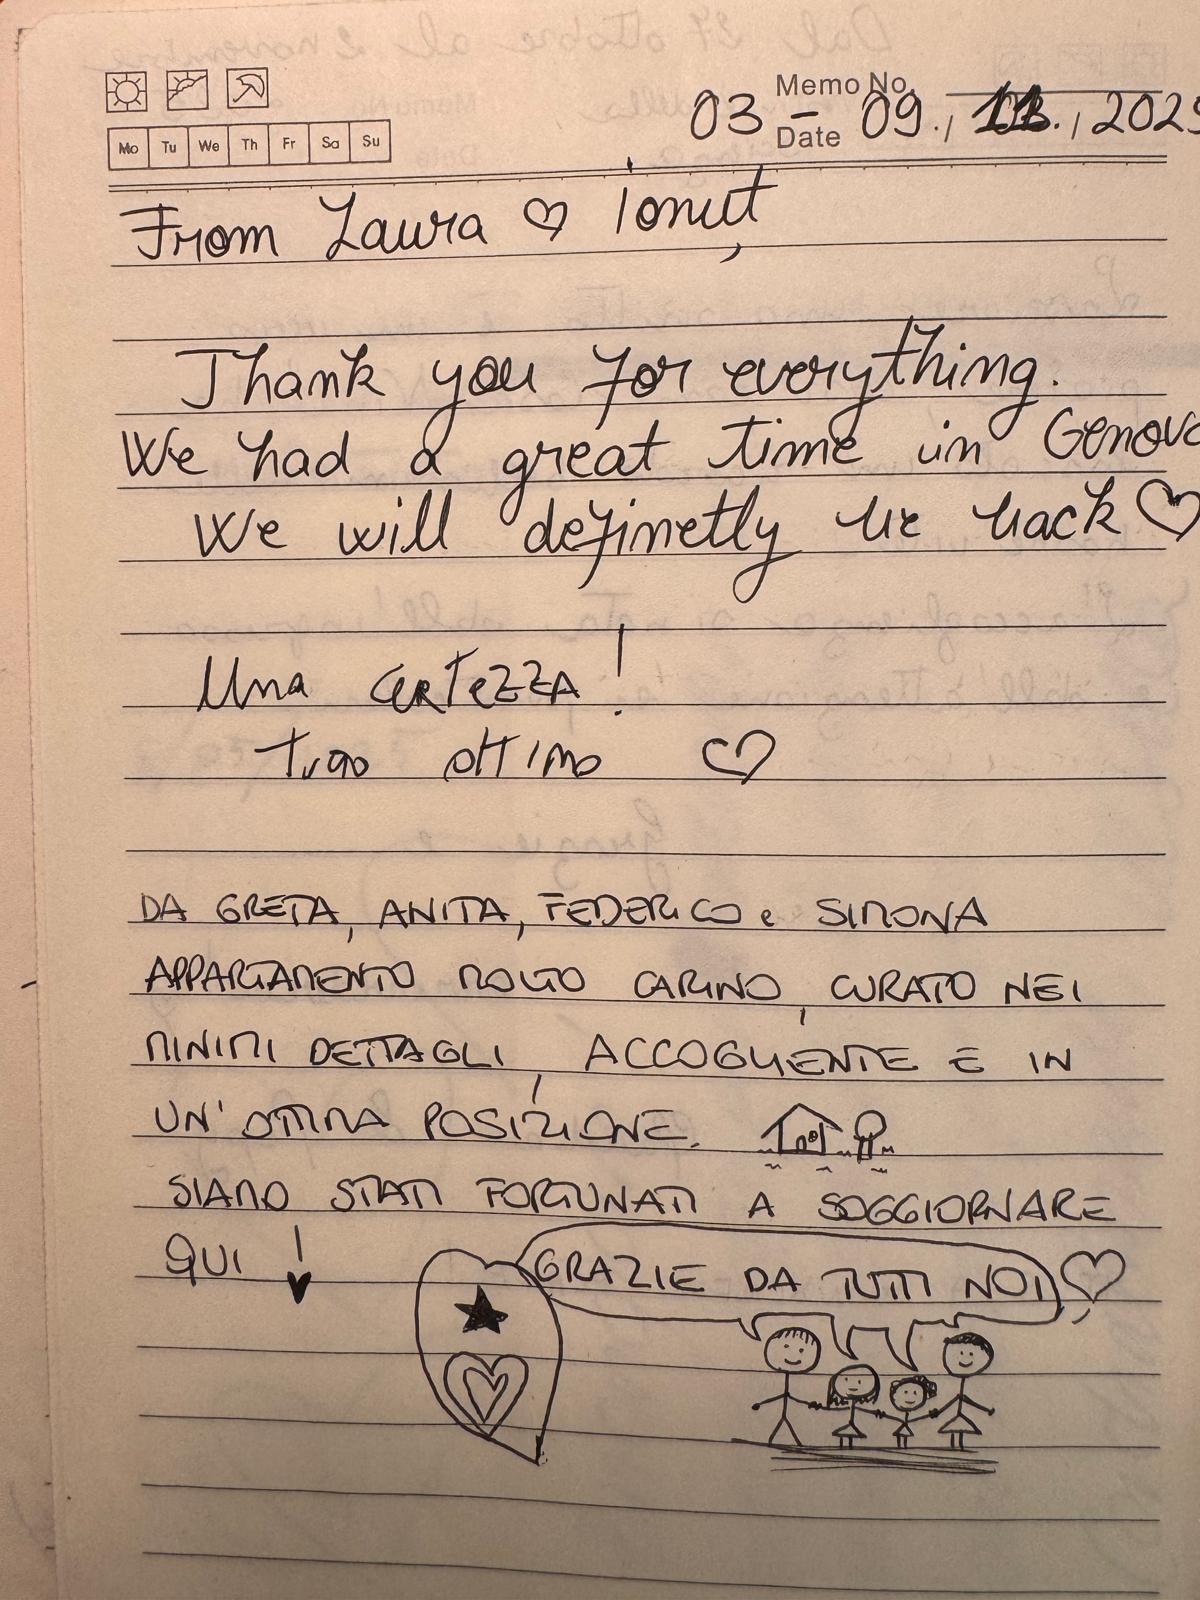 Memo No.
Mo Tu We Th Fr Sa Su
Date
03 - 09., 2025
From Laura ♡ Ionuț
Thank you for everything.
We had a great time in Genova
We will definetly be back ♡
Una certezza!
Tutto ottimo ♡
DA GRETA, ANITA, FEDERICO e SIMONA
APPARTAMENTO MOLTO CARINO, CURATO NEI
MINIMI DETTAGLI, ACCOGLIENTE E IN
UN'OTTIMA POSIZIONE.
SIAMO STATI FORTUNATI A SOGGIORNARE
QUI !
GRAZIE DA TUTTI NOI ♡